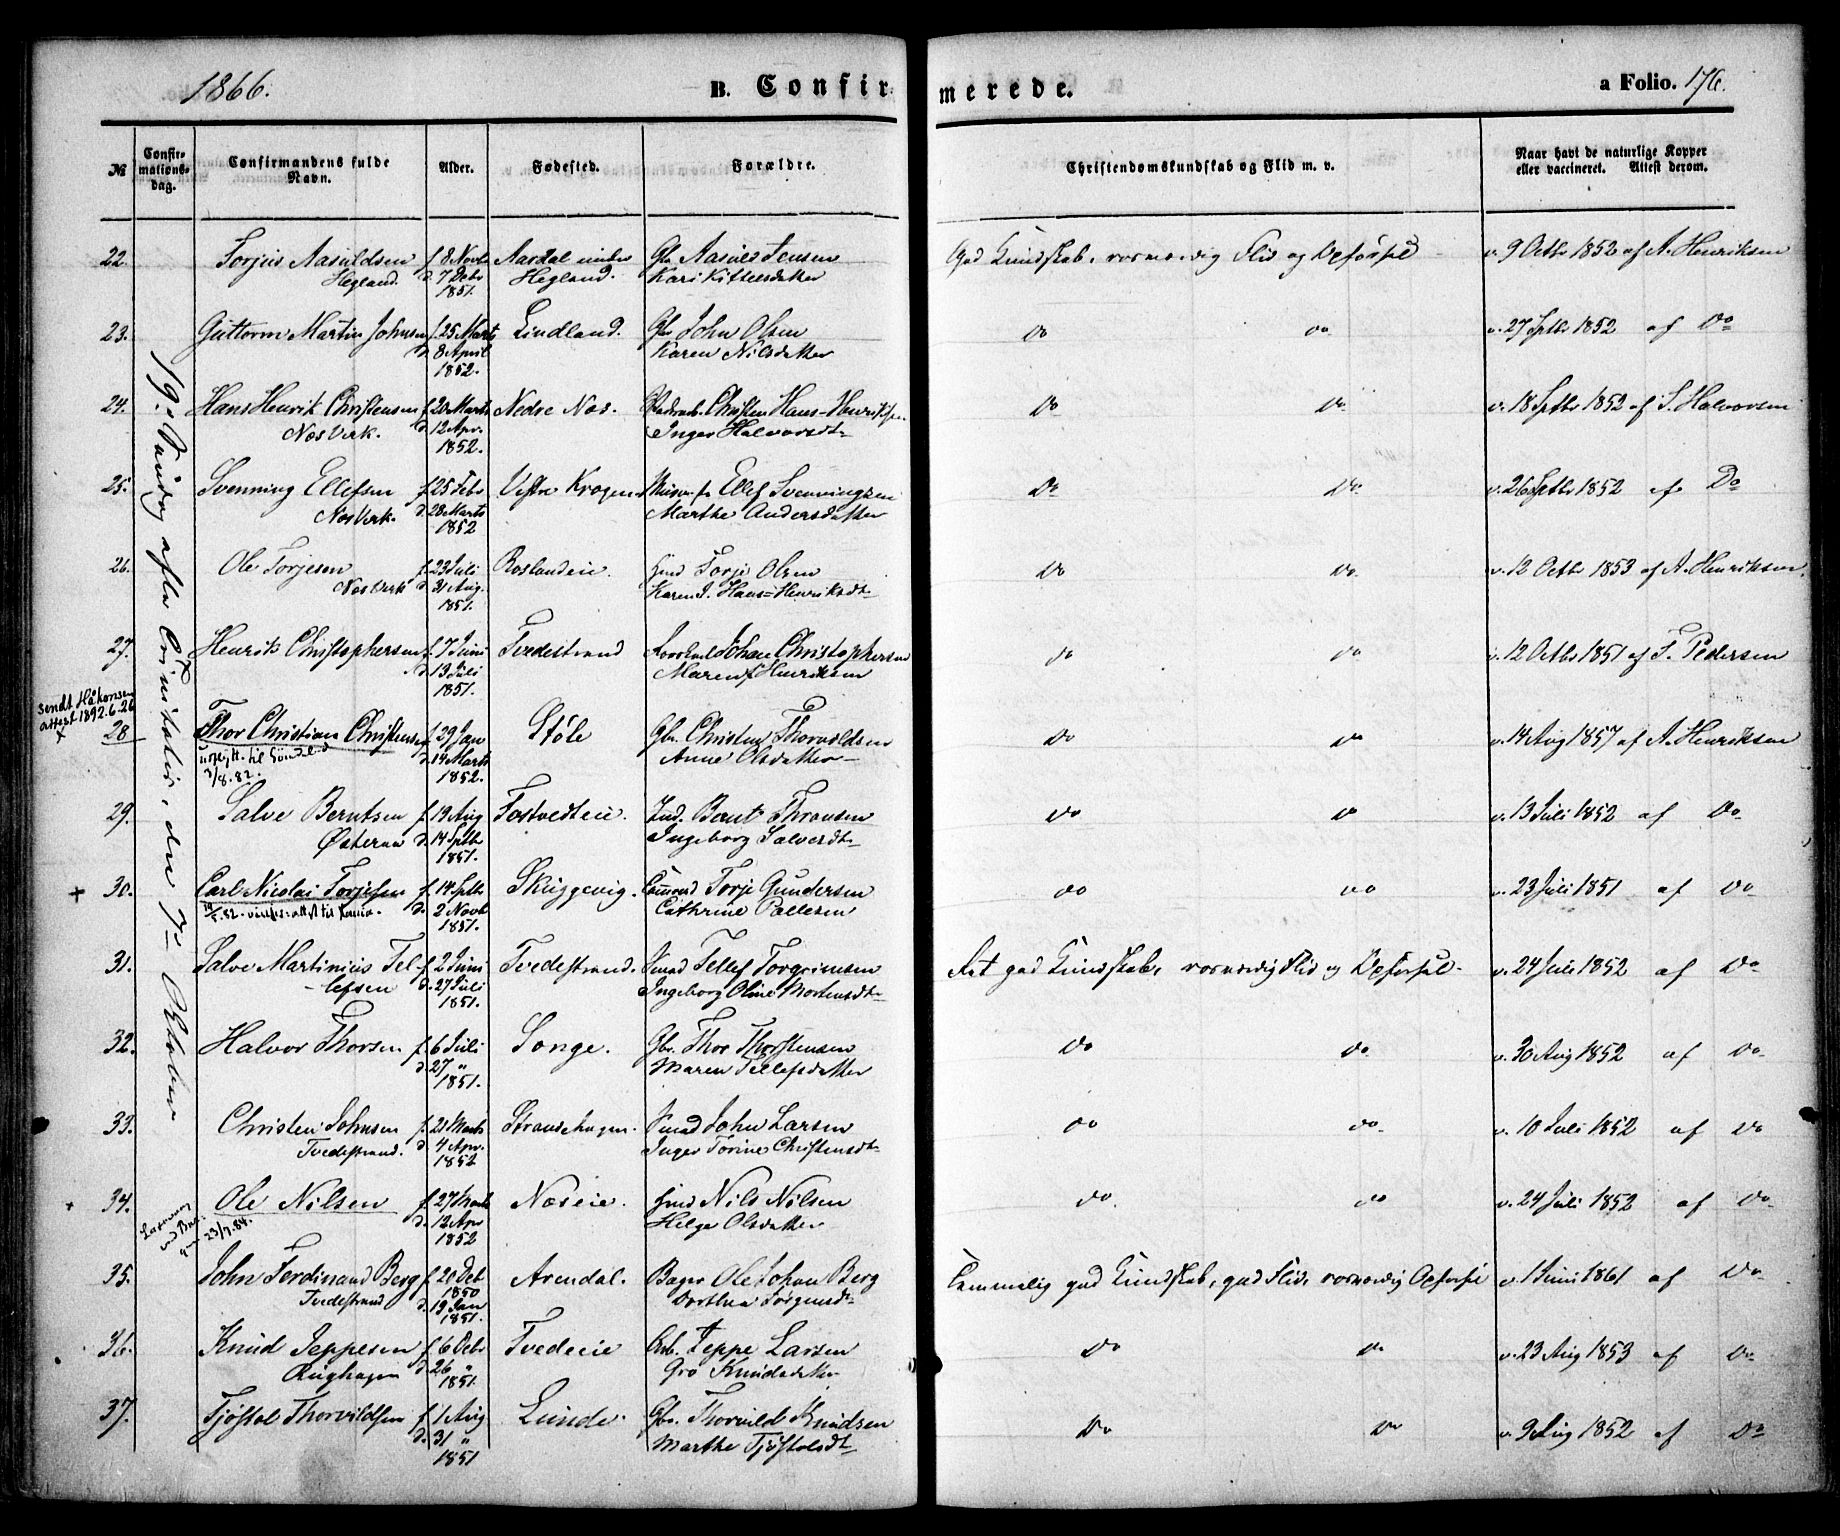 1866.
B. Confirmerede.
a Folio. 176.
No
Confirmationsdag.
Confirmandens fulde Navn.
Alder.
Fødested.
Forældre.
Christendomskundskab og Flid m. v.
Naar havt de naturlige Kopper eller vaccineret. Attest derom.
19. Søndag efter Trinitatis, den 7de Oktober
22. Torjus Aasuldsen f. 8 Novb Aasdal under Gb. Aasuld Jensen God Kundskab, rosværdig Flid og Opførsel v. 9 Octbr 1852 af A. Henriksen
Hegland. d. 7 Debr Hegland. Kari Kittelsdatter
1851.
23. Guttorm Martin Johnsen f. 25 Marts Lindland. Gb. John Olsen Do Do v. 27 Septbr 1852 af Do
d. 8 April Karen Nilsdatter
1852.
24. Hans Henrik Christensen f. 20 Marts Nedre Næs. Christen Hans-Henriksen Do Do v. 18 Septbr 1852 af S. Halvorsen
Næs Verk. d. 12 Apr. Inger Halvorsdt
1852.
25. Svenning Ellefsen f. 25 Febr Vestre Krogen Ellef Svenningsen Do Do v. 26 Septbr 1852 af Do
Næs Verk. d. 28 Marts Marthe Andersdatter
1852
26. Ole Torjesen f. 23 Juli Roslandeie. Hmd Torje Olsen Do Do v. 12 Octbr 1853 af A. Henriksen.
Næs Verk d. 31 Aug. Karen J. Hans-Henriksdt
1851.
27. Henrik Christophersen f. 7 Juni Tvedestrand Johan Christophersen Do Do v. 12 Octbr 1851 af T. Pedersen
d. 13 Juli Maren Henriksen
1851.
sendt Håkonsen
attest 1892.6.26
28 Thor Christian Christensen f. 29 Jan Støle Gb. Christen Thorvildsen Do Do v. 14 Aug 1857 af A. Henriksen
uflytt. til Søndeled d. 14 Marts Anne Olsdatter
3/8.82. 1852.
29. Salve Berntsen f. 19 Aug Fostvedteie. Ind. Bernt Thronsen Do Do v. 13 Juli 1852 af Do
Østeraa d. 14 Septbr Ingeborg Salvesdt
1851.
+ 30. Carl Nicolai Torjesen f. 14 Septbr Skuggevig. Torje Gundersen Do Do v. 23 Juli 1851 af Do
d. 2 Novb Cathrine Pallesen
1851.
31. Salve Martinius Tel- f. 2 Juni Tvedestrand. Smed Tellef Torgrimsen Ret god Kundskab, rosværdig Flid og Opførsel v. 24 Juli 1852 af Do
lefsen d. 27 Juli Ingeborg Oline Mortensdt
1851.
32. Halvor Thorsen f. 6 Juli Songe. Gb. Thor Thorstensen Do Do v. 30 Aug 1852 af Do
d. 27 " Maren Tellefsdatter
1851.
33. Christen Johnsen f. 21 Marts Smed John Larsen Do Do v. 10 Juli 1852 af Do
Tvedestrand. d. 4 Apr. Inger Torine Christensdt
1852
34. Ole Nilsen f. 27 Marts Næseie. Hmd Nils Nilsen Do Do v. 24 Juli 1852 af Do
23/7.84. d. 12 Apr Helge Olsdatter
1852
35. John Ferdinand Berg f. 20 Deb Arendal. Bager Ole Johan Berg Temmelig god Kundskab, god Flid, rosværdig Opførsel v. 1 Juni 1861 af Do
1850
Tvedestrand d. 19 Jan Dorthea Jørgensdt
1851.
36. Knud Jeppesen f. 6 Octbr Tvedeeie Arb. Jeppe Larsen Do Do v. 23 Aug 1853 af Do
Rughagen d. 26 " Gro Knudsdatter
1851.
37. Tjøstol Thorvildsen f. 1 Aug Lunde. Gb. Thorvild Knudsen Do Do v. 9 Aug 1852 af Do
d. 31 " Marthe Tjøstolsdt
1851